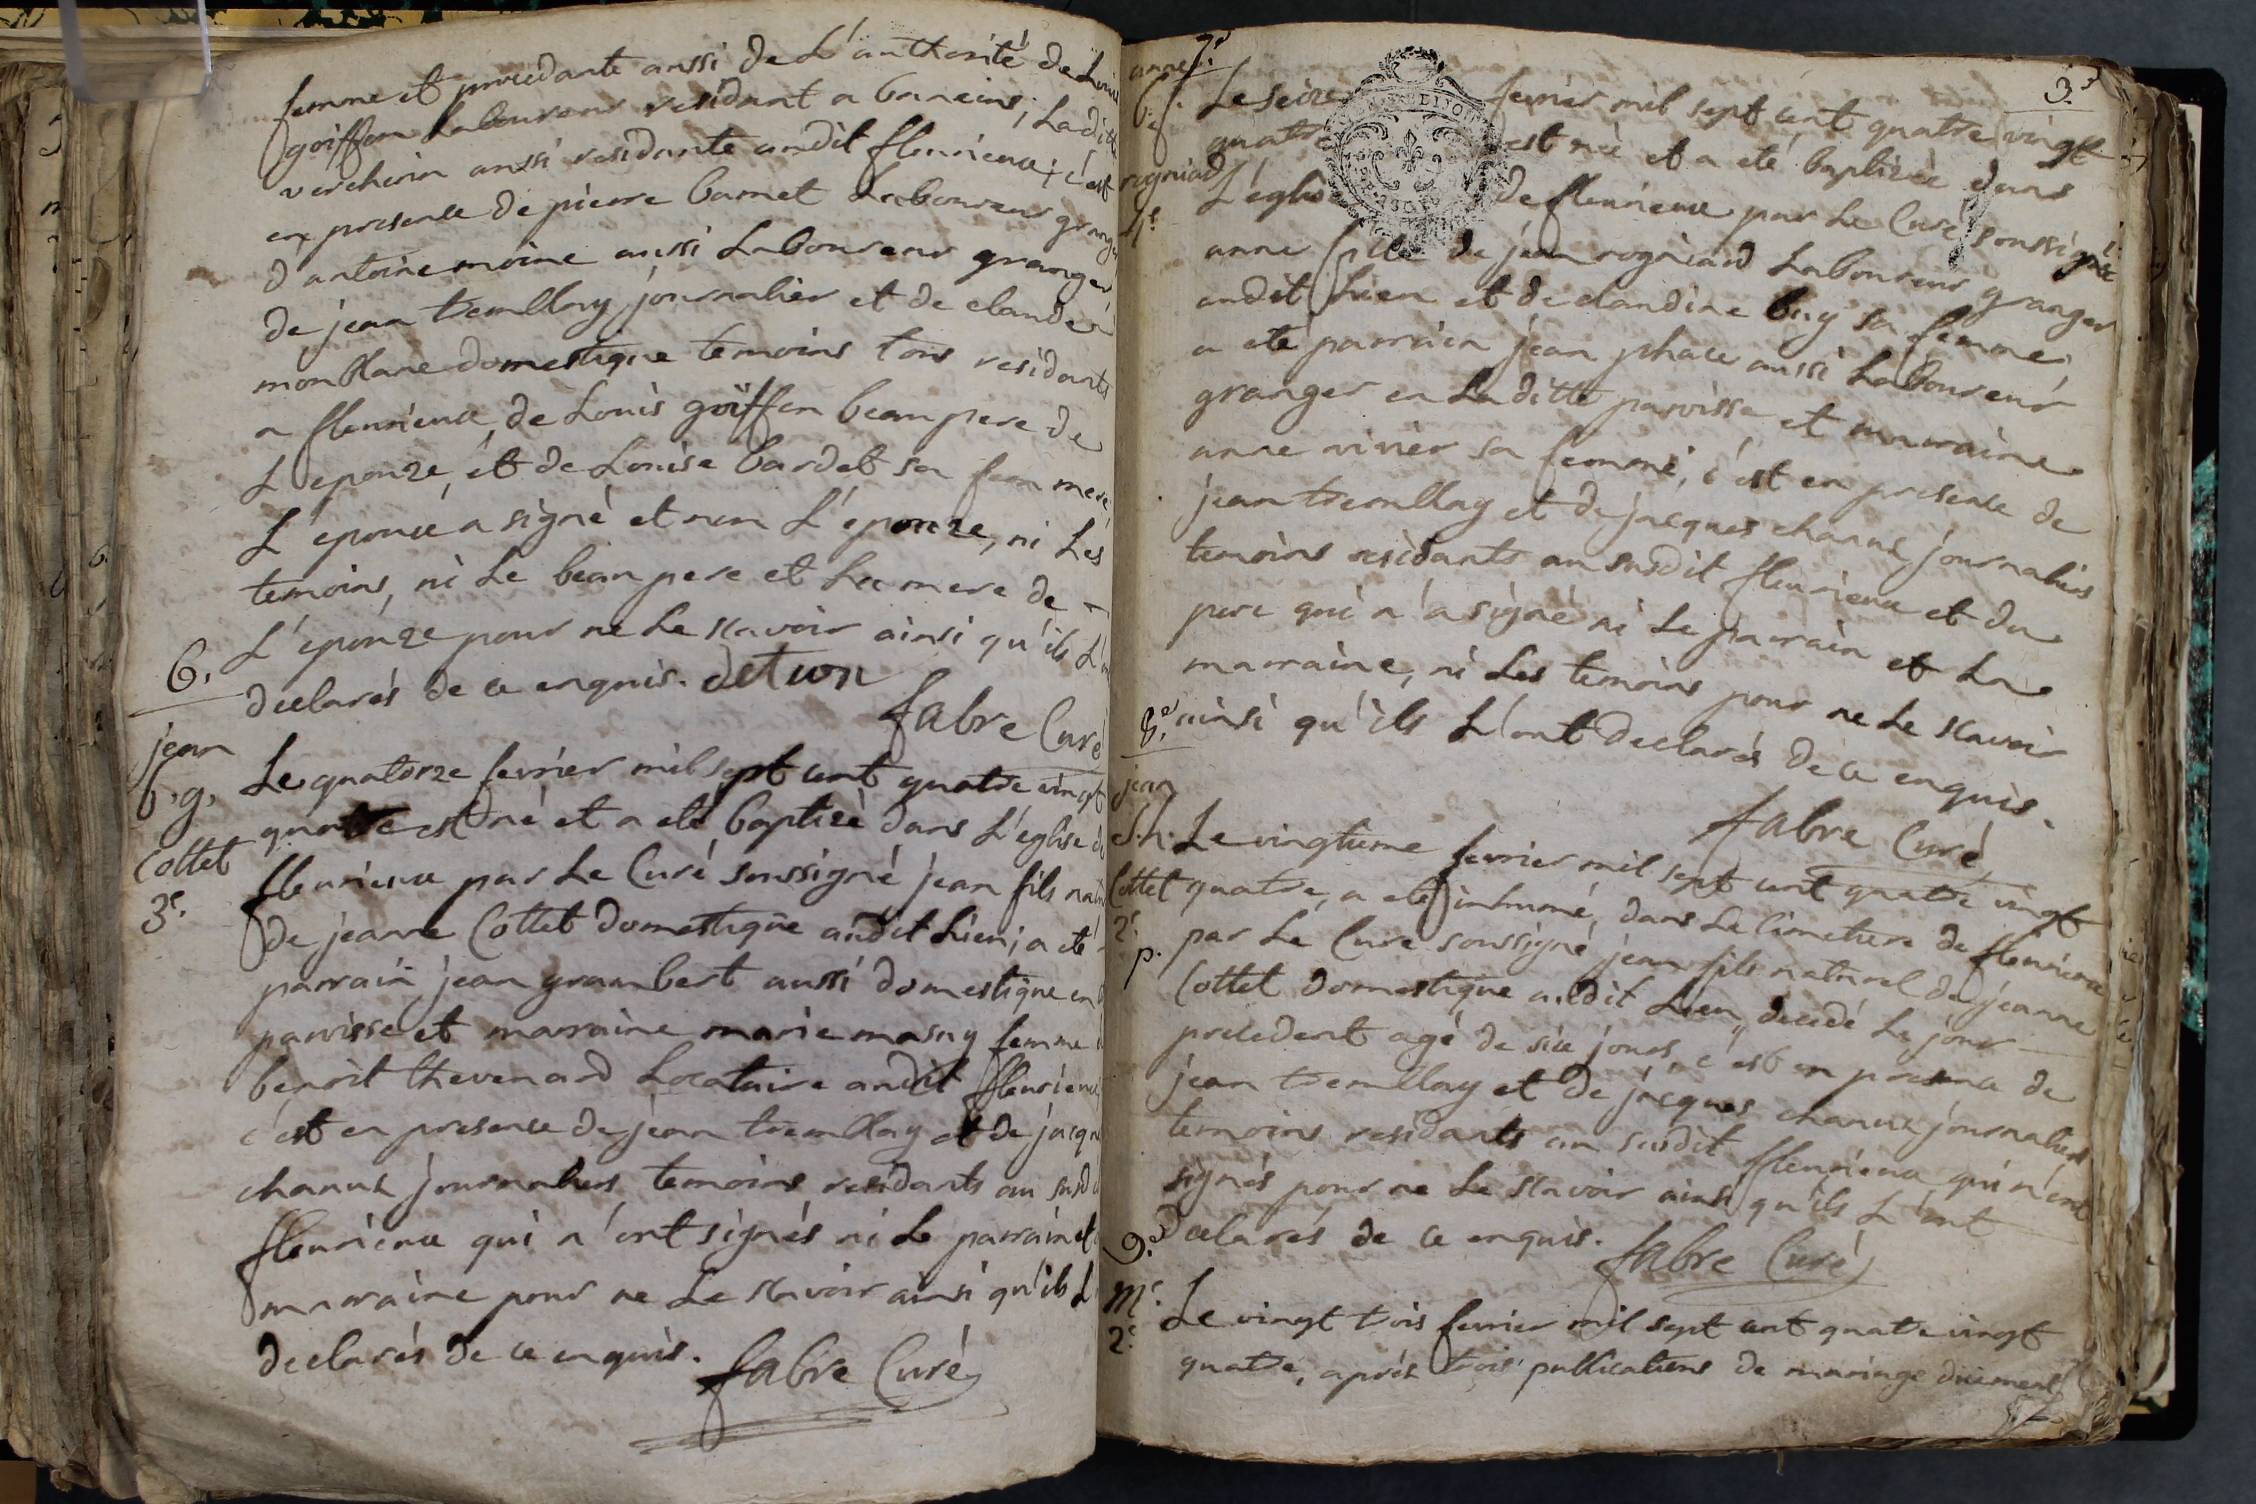 femme et procedante aussi de L'authorité de Louis
goiffon Laboureur residant a baneins; Laditte
verchein aussi residante audit fleurieux; c'est
en presence de pierre bornet Laboureur granger
d'antoine moine aussi Laboureur granger,
de jean tremllay journalier et de claude
monblanc domestique temoins tous residants
a fleurieux, de Louis goiffon beaupere de
L'epouze, et de Louise bardet sa femme mere,
L'epoux a signé et non L'epouze, ni Les
temoins, ni Le beaupere et La mere de
L'epouze pour ne Le scavoir ainsi qu'ils L'ont
declarés de ce enquis. detion
fabre Curé
6.
jean
b.g.
Cottet
3e.
Le quatorze fevrier mil sept cent quatre vingt
quatre est né et a eté baptizé dans L'eglise de
fleurieux par Le Curé soussigné jean fils nat
de jeanne Cottet domestique audit Lieu; a eté
parrain jean grambert aussi domestique en
parroisse et marraine marie masuy femme
benoit thevenard Locataire audit fleurieux
c'est en presence de jean tremllay et de jacqu
chanux journaliers temoins residants au susd
fleurieux qui n'ont signés ni Le parrain et
marraine pour ne Le scavoir ainsi qu'ils L
declarés de ce enquis. fabre Curé
3.e
7.e
anne
b.f.
rogniard
4e
Le seize fevrier mil sept cent quatre vingt
quatre est née et a eté baptizée dans
L'eglise de fleurieux par Le Curé soussigné
anne fille de jean rogniard Laboureur granger
audit Lieu et de claudine buy sa femme,
a eté parrain jean phace aussi Laboureur
granger en Laditte paroisse et marraine
anne vivier sa femme, c'est en presence de
jean tremllay et de jacques chanux journaliers
temoins residants au susdit fleurieux et du
pere qui n'a signé ni Le parrain et La
marraine, ni Les temoins pour ne Le scavoir
ainsi qu'ils L'ont declarés de ce enquis.
fabre Curé
8.e
jean
S.h.
Cottet
2e.
p.
Le vingtieme fevrier mil sept cent quatre vingt
quatre, a eté inhumé dans Le Cimetiere de fleurieux
par Le Curé soussigné jean fils naturel de jeanne
Cottet domestique audit Lieu, decedé Le jour
precedent agé de six jours, c'est en presence de
jean tremllay et de jacques chanux journaliers
temoins residants au susdit fleurieux qui n'ont
signés pour ne Le scavoir ainsi qu'ils L'ont
declarés de ce enquis. fabre Curé
9.e
Me.
2e.
Le vingt trois fevrier mil sept cent quatre vingt
quatre, aprés trois publications de mariage düement